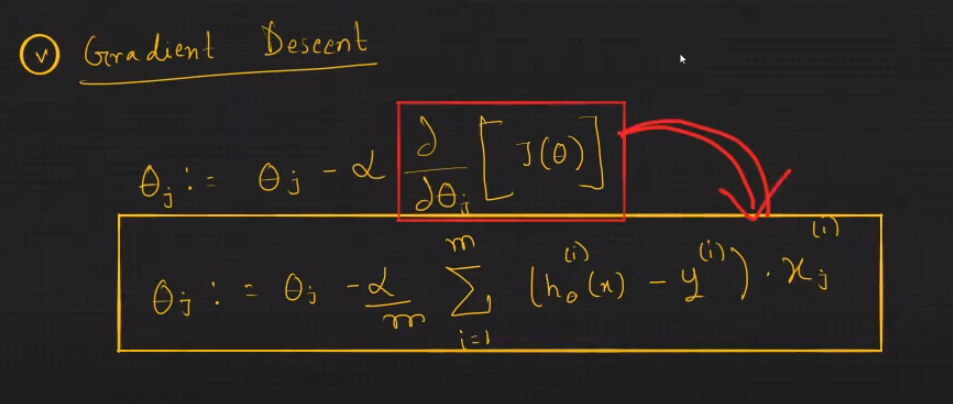 (v) Gradient Descent
θj := θj - α ∂/∂θj [J(θ)]
θj := θj - α/m Σ_{i=1}^{m} (hθ^{(i)}(x) - y^{(i)}) . xj^{(i)}